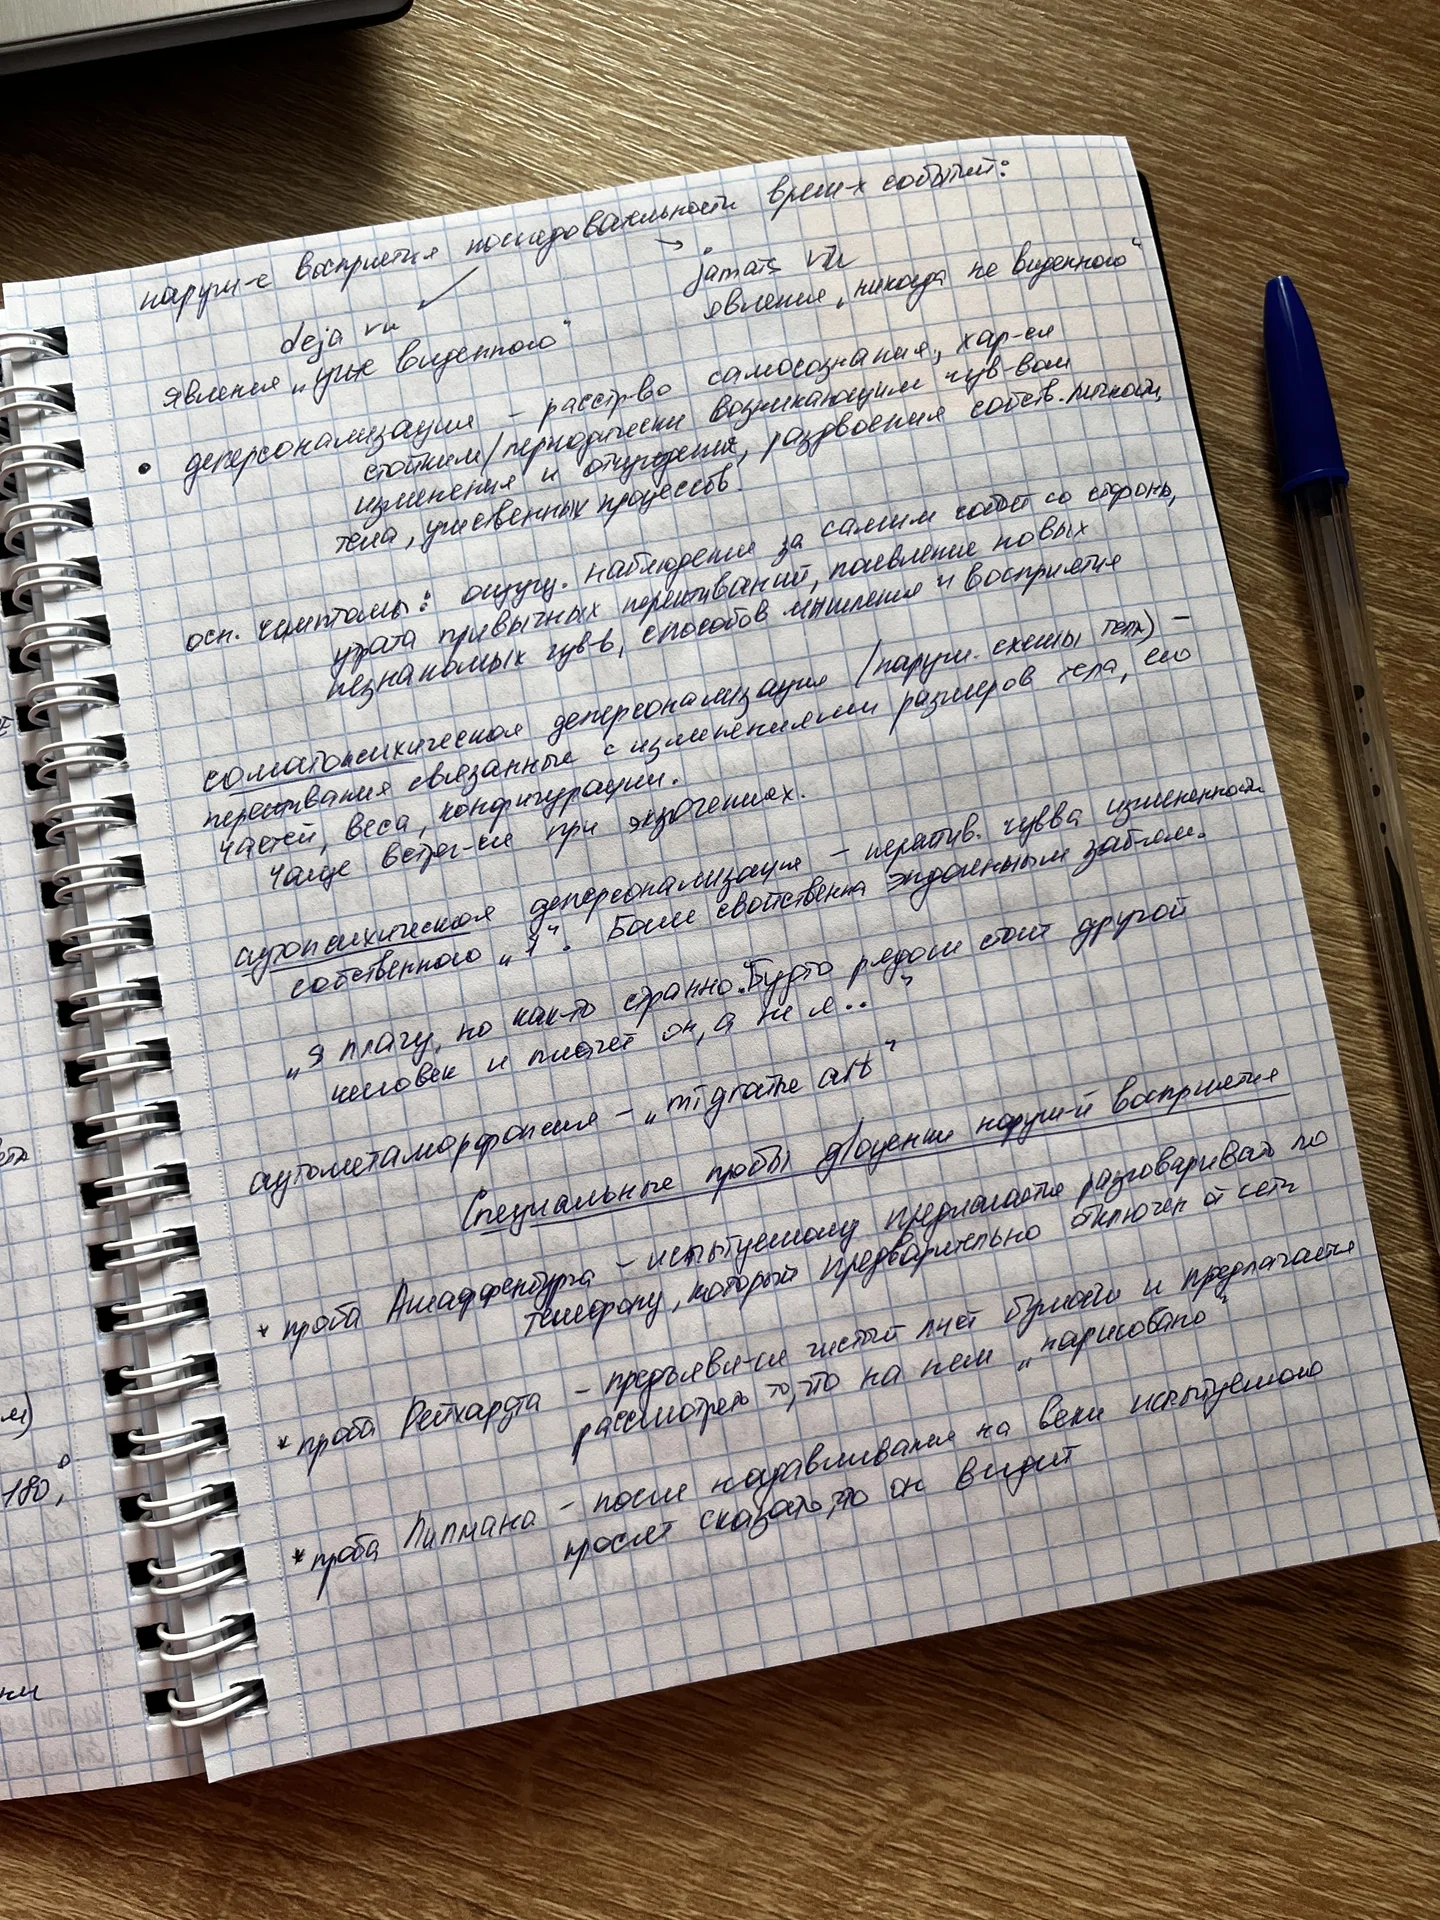 наруш-е восприятия последовательности врем-х событий:
deja vu
jamais vu
явления „уже виденного“
явления „никогда не виденного“
• деперсонализация – расстр-во самосознания, хар-ся
стойким/периодически возникающим чув-вом
изменения и отчуждения, раздвоения собств. личности,
тела, умственных процессов.
осн. симптомы: ощущ. наблюдения за самим собой со стороны,
утрата привычных переживаний, появление новых
незнакомых чув-в, способов мышления и восприятия
соматопсихическая деперсонализация (наруш. схемы тела) –
переживания связанные с изменениями размеров тела, его
частей, веса, конфигурации.
Чаще встреч-ся при экзогениях.
аутопсихическая деперсонализация – чувва измененности
собственного „Я“. Более свойственна эндогенным заб-ям.
„Я плачу, но как-то странно. Будто рядом стоит другой
человек и плачет он, а не я..“
аутометаморфопсия – „migraine art“
Специальные пробы д/оценки наруш-й восприятия
* проба Ашаффенбурга – испытуемому предлагается разговаривать по
телефону, который предварительно отключен от сети
* проба Рейхардта – предъявл-ся чистый лист бумаги и предлагается
рассмотреть то, что на нем „нарисовано“
* проба Липмана – после надавливания на веки испытуемого
просят сказать, что он видит
м)
180,°